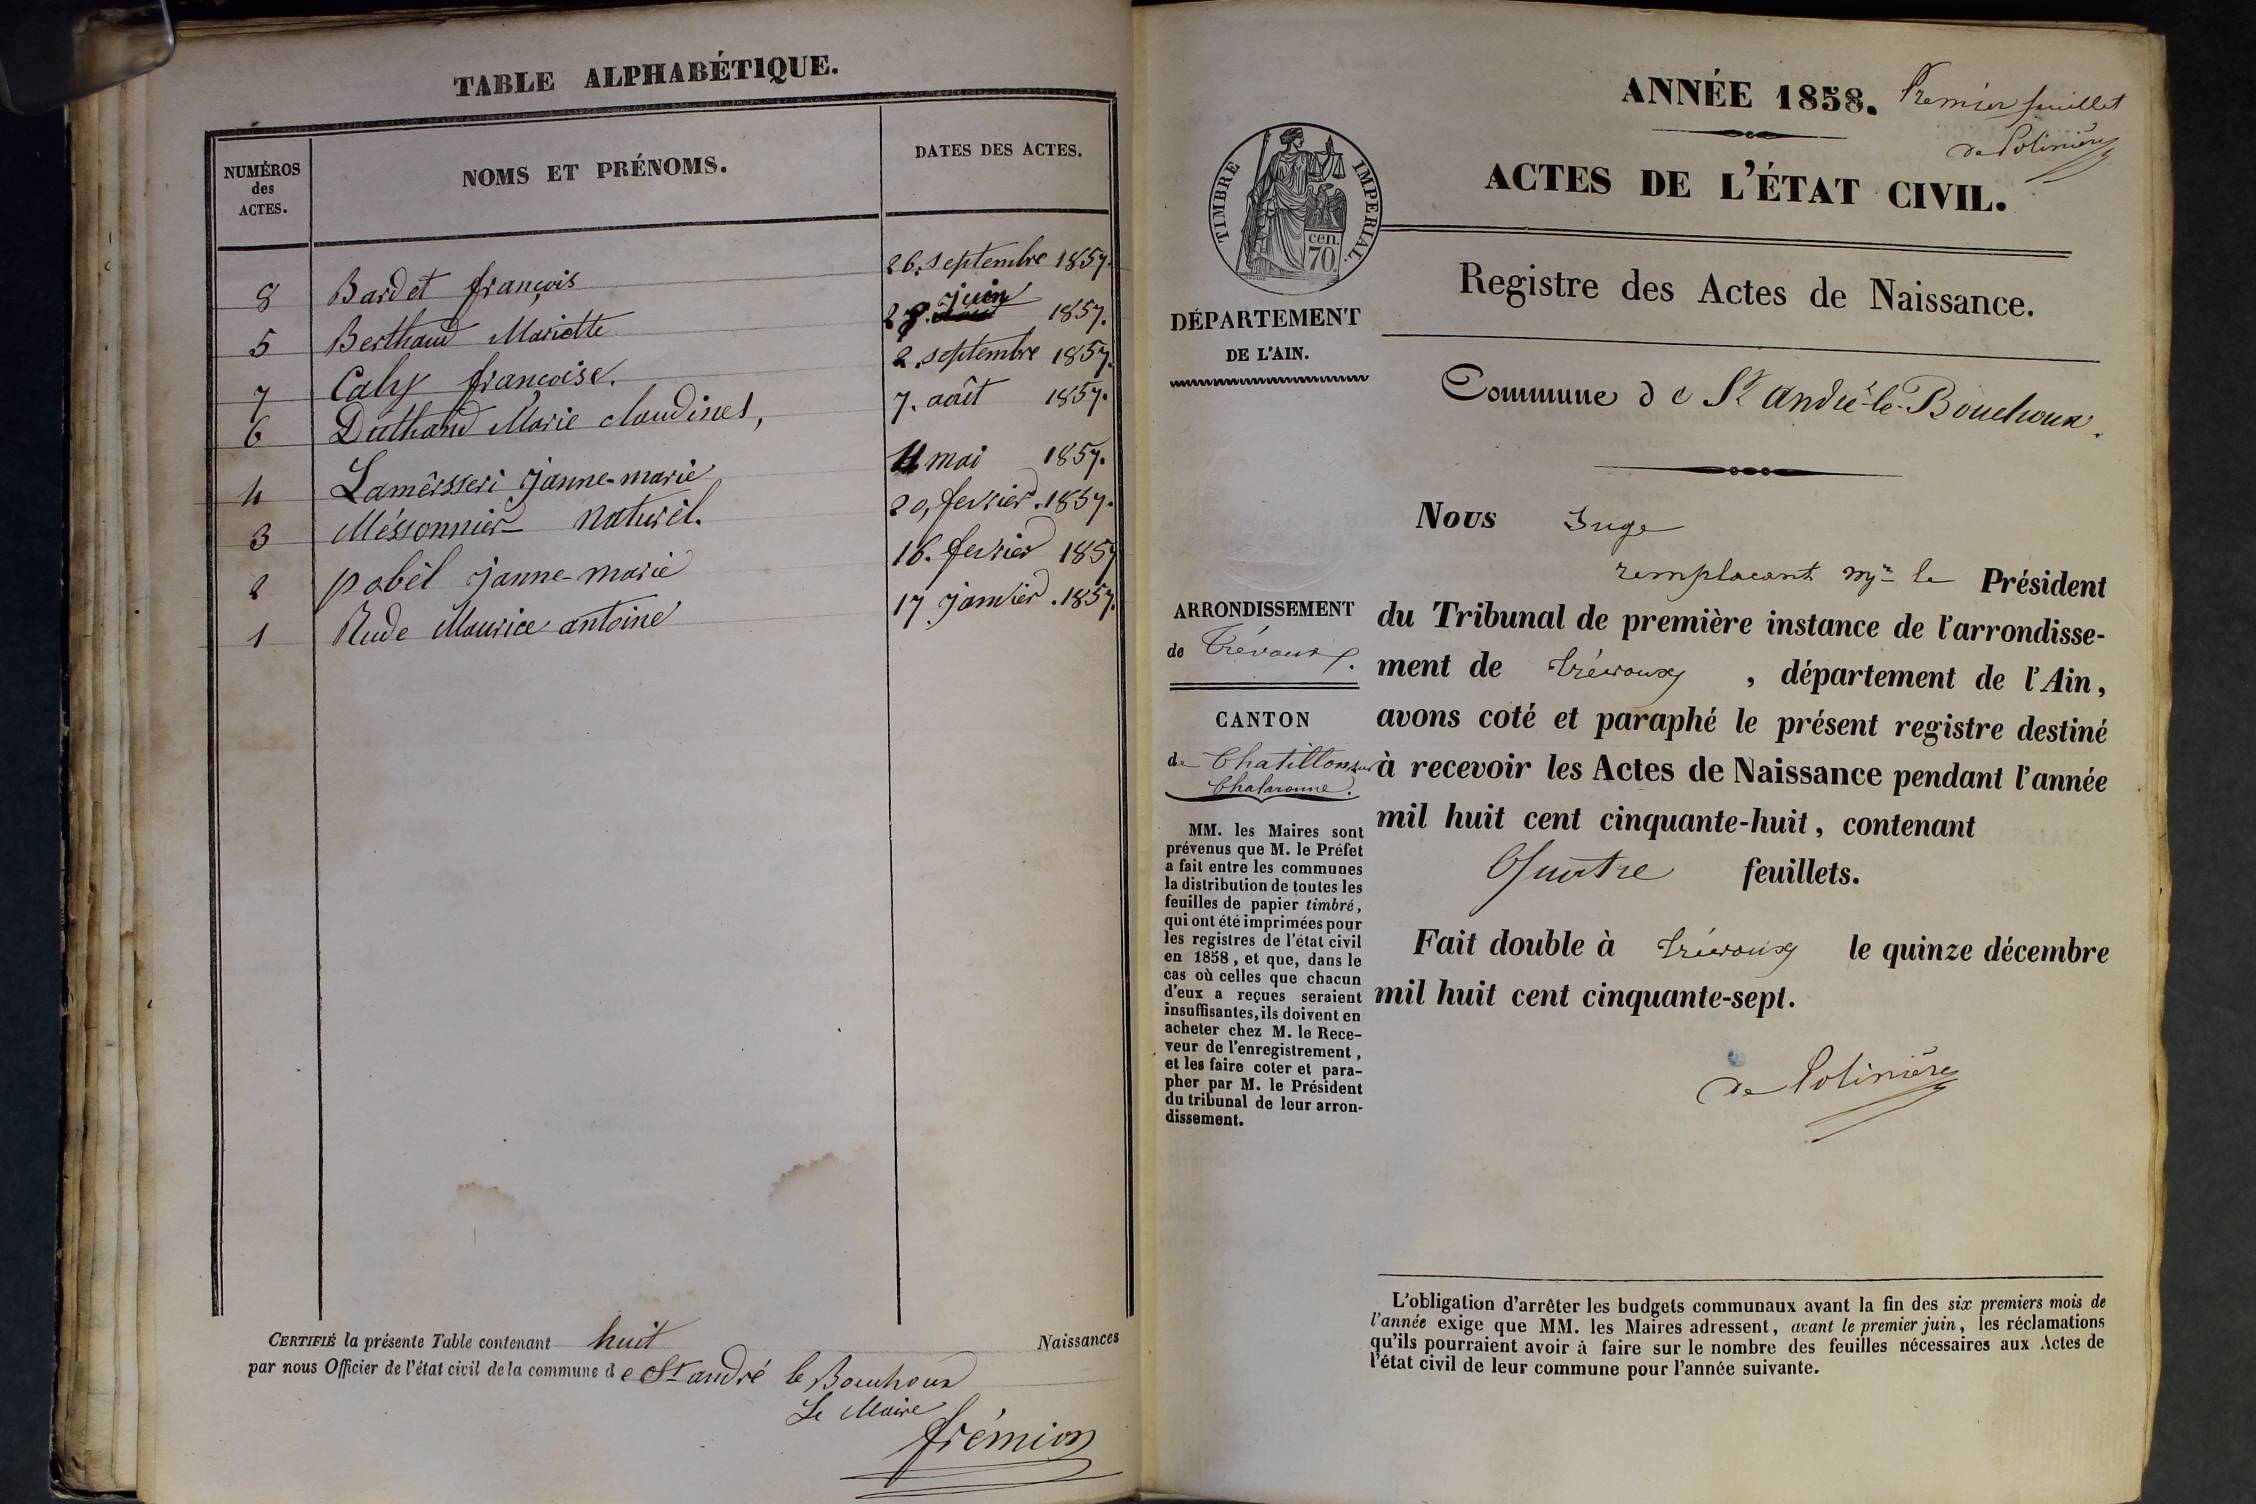 TABLE ALPHABÉTIQUE.
NUMÉROS des ACTES. NOMS ET PRÉNOMS. DATES DES ACTES.
8 Bardet françois 26. septembre 1857.
5 Berthaud Mariette juin 1857.
7 Caly françoise. 2. septembre 1857.
6 Duthand Marie claudines, 7. août 1857.
4 janne-marie 4 mai 1857.
3 Méssonnier naturèl. 20, fevrier. 1857.
2 pobèl janne-marie 16. fevrier 1857
1 Rude Maurice antoine 17 janvier. 1857.
CERTIFIÉ la présente Table contenant huit Naissances
par nous Officier de l'état civil de la commune de St andré le Bouchoux
Le Maire
frémion
ANNÉE 1858.
Premier feuillet
de Polinière
ACTES DE L'ÉTAT CIVIL.
TIMBRE IMPERIAL.
cen.
70
Registre des Actes de Naissance.
DÉPARTEMENT
DE L'AIN.
Commune de St André-le-Bouchoux.
Nous Juge
remplacant Mr le Président
du Tribunal de première instance de l'arrondisse-
ment de Trévoux, département de l'Ain,
avons coté et paraphé le présent registre destiné
à recevoir les Actes de Naissance pendant l'année
mil huit cent cinquante-huit, contenant
Quatre feuillets.
Fait double à Trévoux le quinze décembre
mil huit cent cinquante-sept.
de Polinière
ARRONDISSEMENT
de Trévoux.
CANTON
de Chatillon sur
Chalaronne.
MM. les Maires sont
prévenus que M. le Préfet
a fait entre les communes
la distribution de toutes les
feuilles de papier timbré,
qui ont été imprimées pour
les registres de l'état civil
en 1858, et que, dans le
cas où celles que chacun
d'eux a reçues seraient
insuffisantes, ils doivent en
acheter chez M. le Rece-
veur de l'enregistrement,
et les faire coter et para-
pher par M. le Président
du tribunal de leur arron-
dissement.
L'obligation d'arrêter les budgets communaux avant la fin des six premiers mois de
l'année exige que MM. les Maires adressent, avant le premier juin, les réclamations
qu'ils pourraient avoir à faire sur le nombre des feuilles nécessaires aux Actes de
l'état civil de leur commune pour l'année suivante.